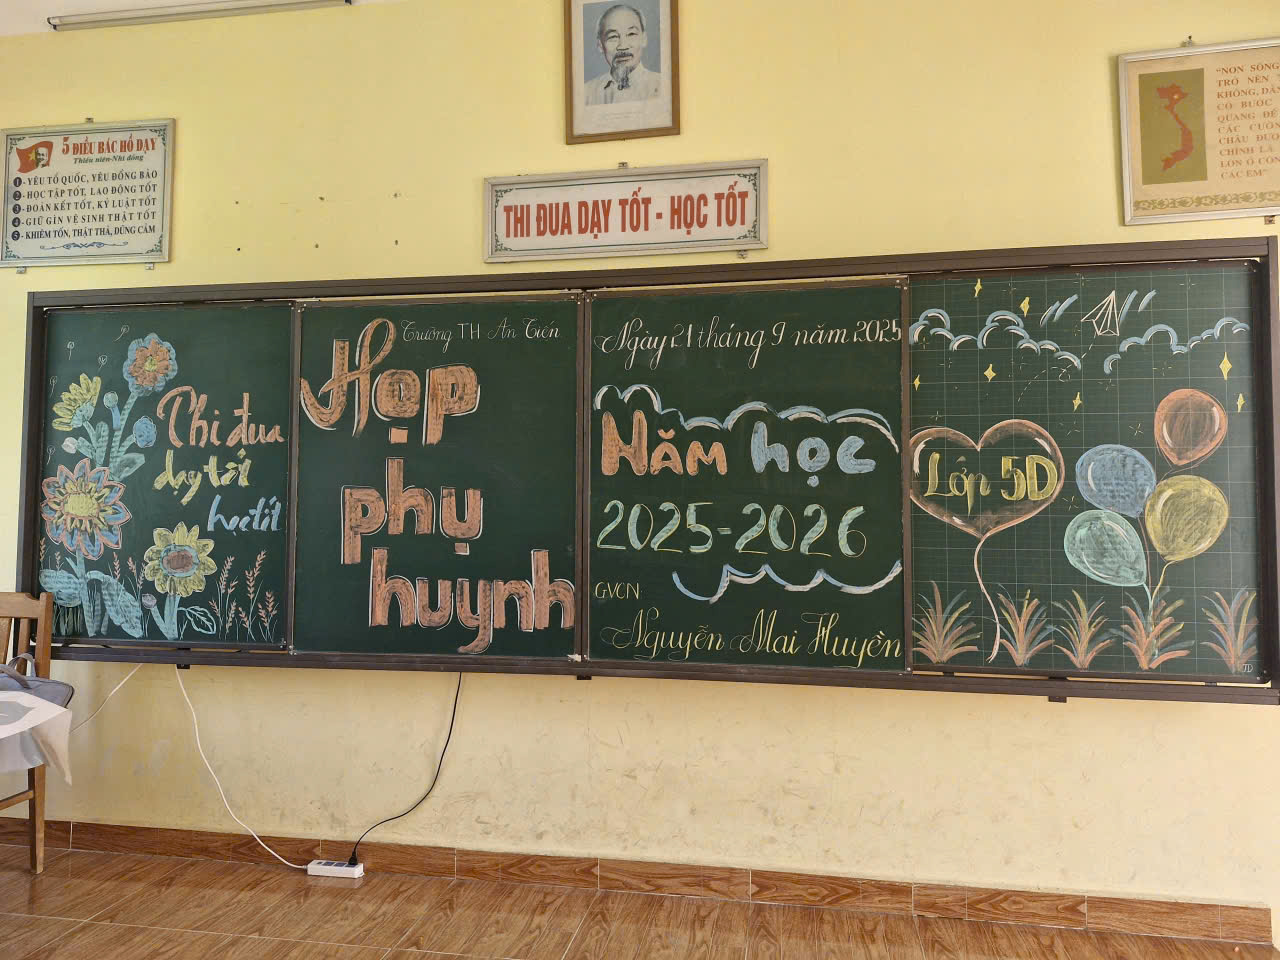 5 ĐIỀU BÁC HỒ DẠY
Thiếu niên-Nhi đồng
1 - YÊU TỔ QUỐC, YÊU ĐỒNG BÀO
2 - HỌC TẬP TỐT, LAO ĐỘNG TỐT
3 - ĐOÀN KẾT TỐT, KỶ LUẬT TỐT
4 - GIỮ GÌN VỆ SINH THẬT TỐT
5 - KHIÊM TỐN, THẬT THÀ, DŨNG CẢM
THI ĐUA DẠY TỐT - HỌC TỐT
"NON SÔNG
TRỞ NÊN
KHÔNG, DÂN
CÓ BƯỚC
QUANG ĐỂ
CÁC CƯỜNG
CHÂU ĐƯỢC
CHÍNH LÀ
LỚN Ở CÔNG
CÁC EM"
Thi đua
dạy tốt
học tốt
Trường TH An Tiến
Họp
phụ
huynh
Ngày 21 tháng 9 năm 2025
NĂM học
2025-2026
GVCN
Nguyễn Mai Huyền
Lớp 5D